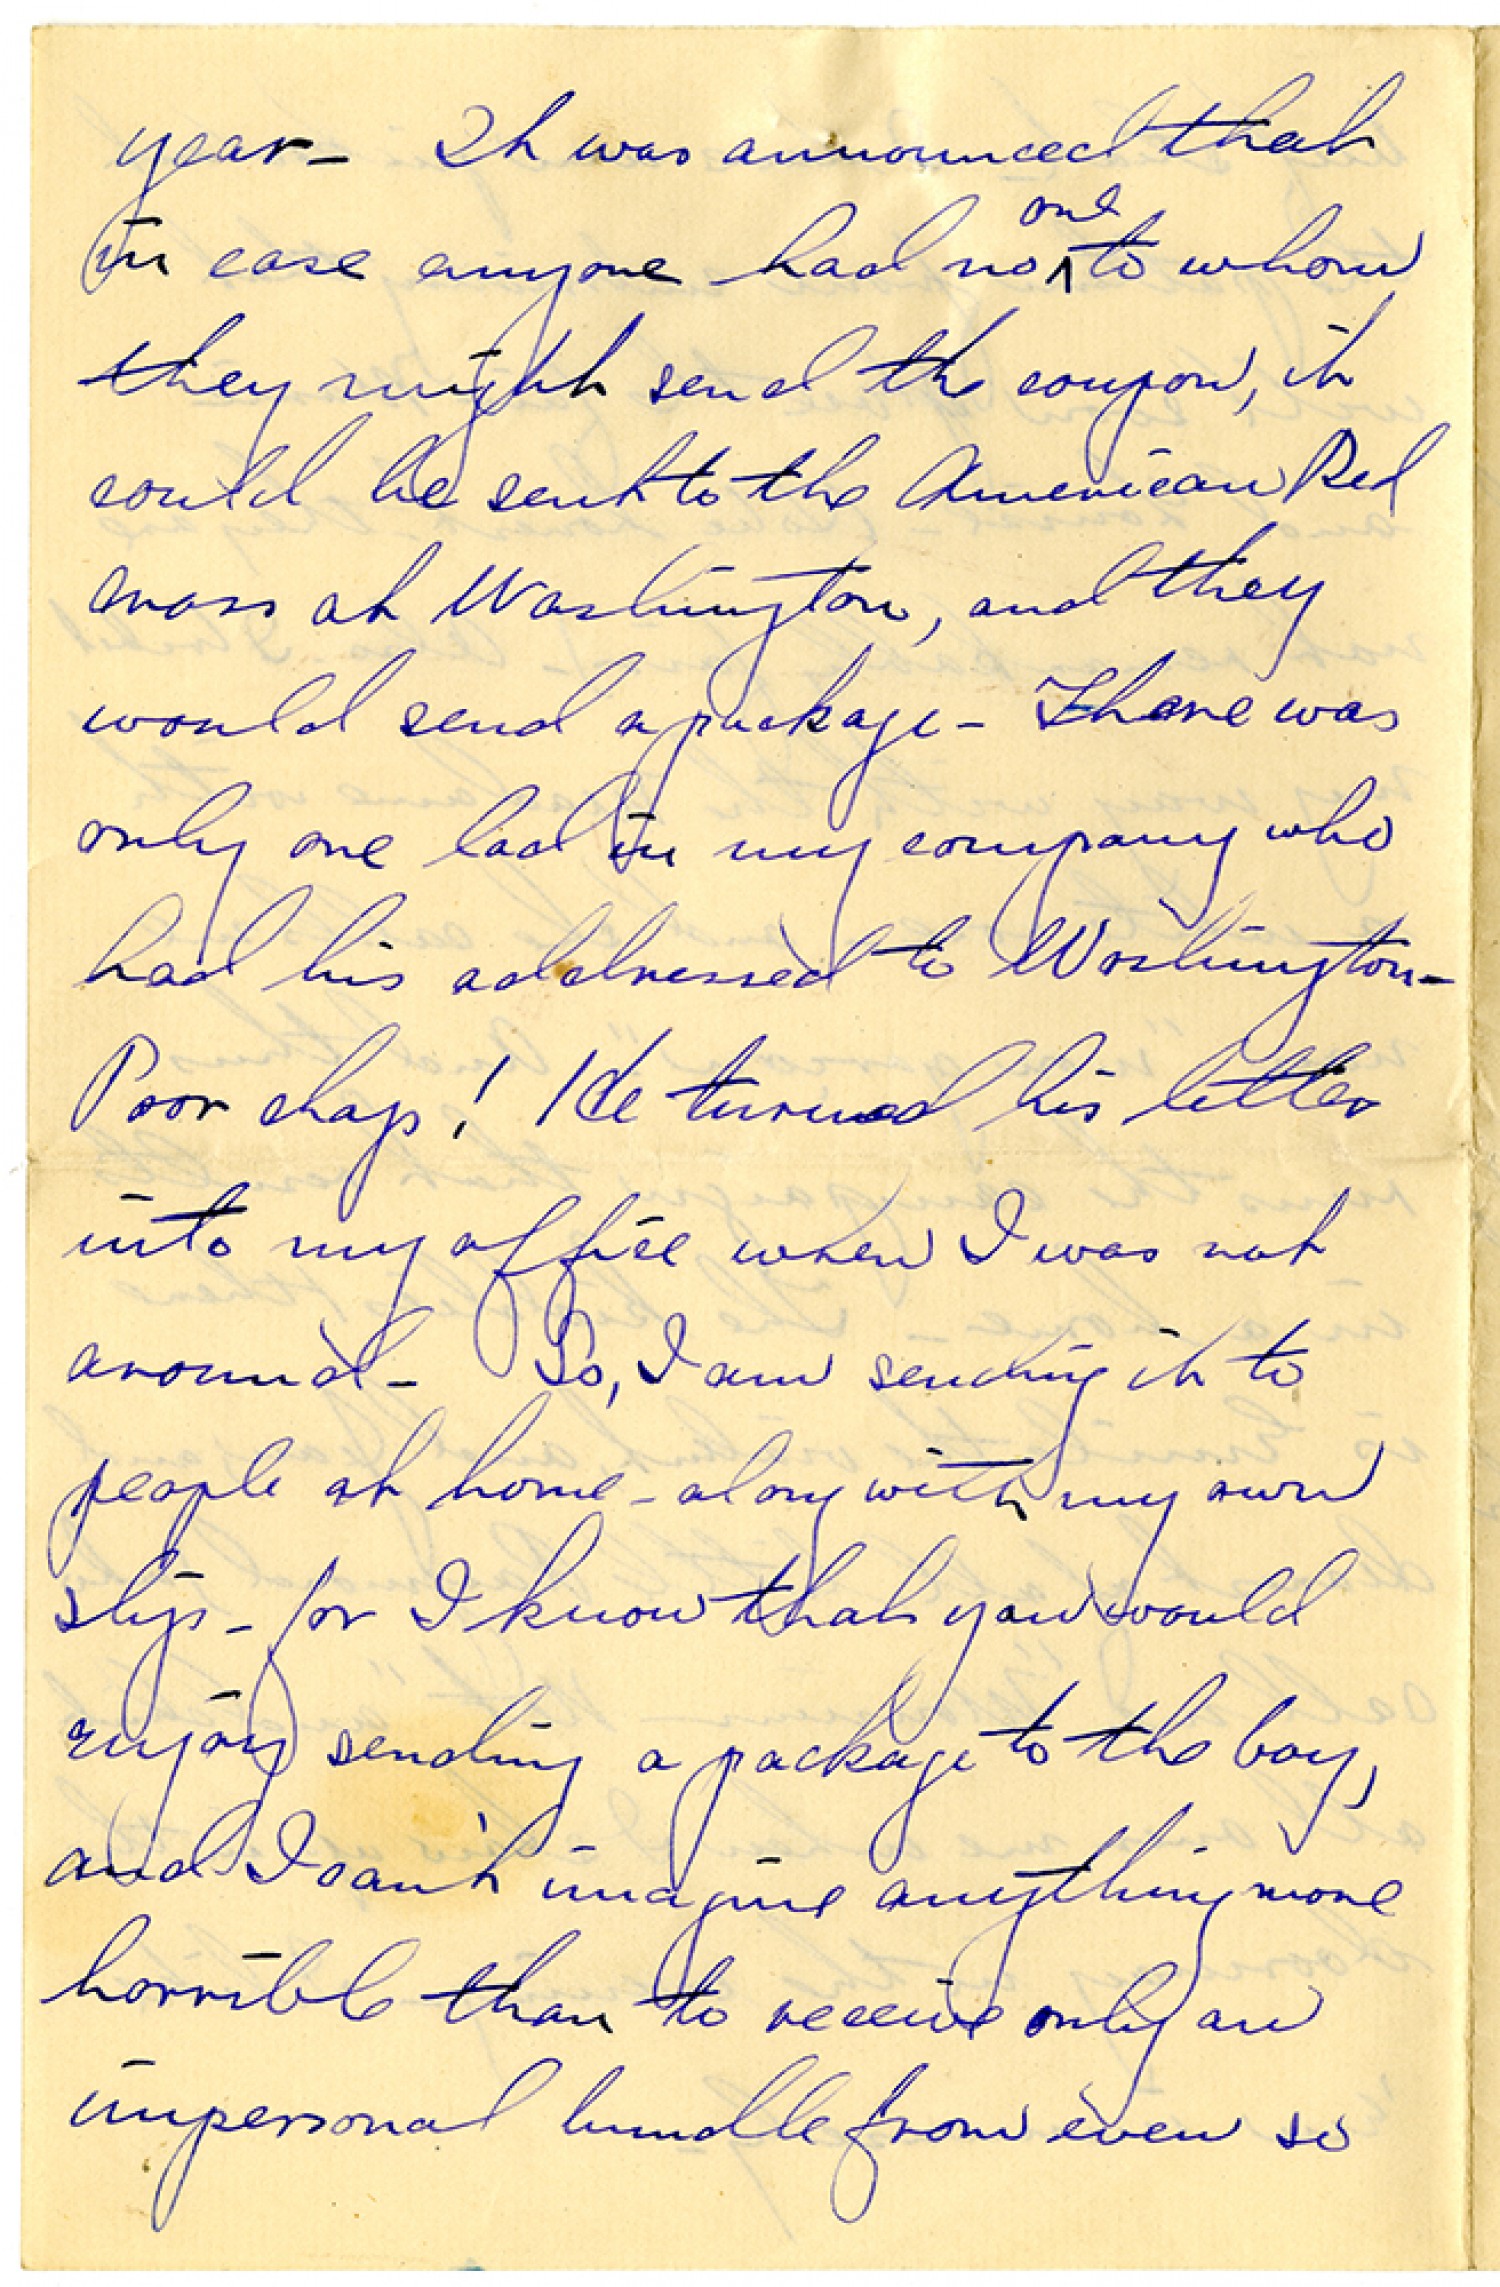 year- It was announced that
in case anyone had no one to whom
they might send the coupon, it
could be sent to the American Red
Cross at Washington, and they
would send a package- There was
only one lad in my company who
had his addressed to Washington-
Poor chap! He turned his letter
into my office when I was not
around- So, I am sending it to
people at home-along with my own
slip- for I know that you would
enjoy sending a package to the boy,
and I can't imagine anything more
horrible than to receive only an
impersonal bundle from even so